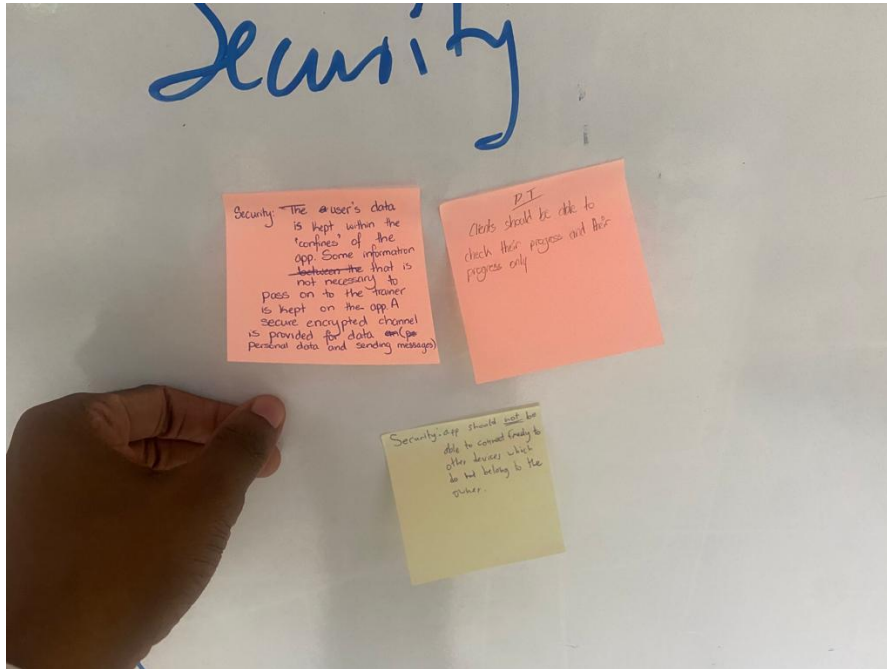 Security
Security: The user's data
is kept within the
'confines' of the
app. Some information
between the that is
not necessary to
pass on to the trainer
is kept on the app. A
secure encrypted channel
is provided for data
personal data and sending messages)
PT
Clients should be able to
check their progress and their
progress only
Security: app should not be
able to connect freely to
other devices which
do not belong to the
owner.